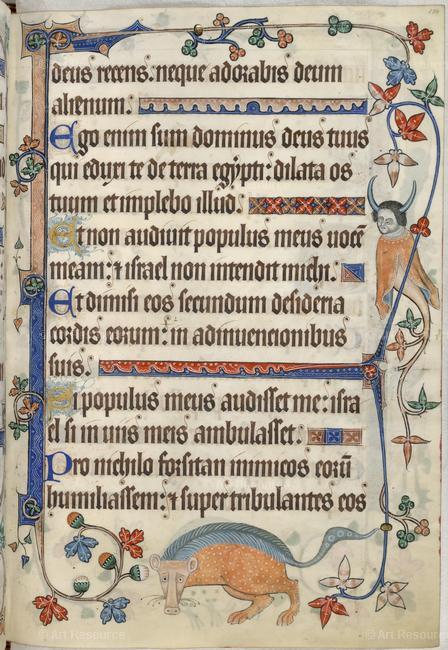 deus recens: neque adorabis deum
alienum.
Ego enim sum dominus deus tuus
qui eduxi te de terra egypti: dilata os
tuum et implebo illud.
Et non audiuit populus meus uocē
meam: ⁊ israel non intendit michi.
Et dimisi eos secundum desideria
cordis eorum: in adinuencionibus
suis.
Si populus meus audisset me: isra
el si in uiis meis ambulasset.
Pro nichilo forsitan inimicos eorū
humiliassem: ⁊ super tribulantes eos
© Art Resource
Art Resource